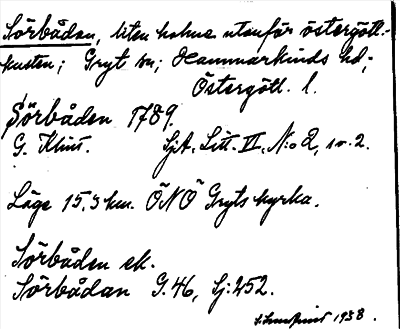 Sörbåden, liten holme utanför östergötl.-
kusten; Gryt sn; Hammarkinds hd;
Östergötl. l.
Sörbåden 1789.
G. Klint. SjA. Litt. II. N:o 2, 
Läge 15,3 km. ÖNÖ Gryts kyrka.
Sörbåden ek.
Sörbådan G. 46, Sj: 252.
1938.